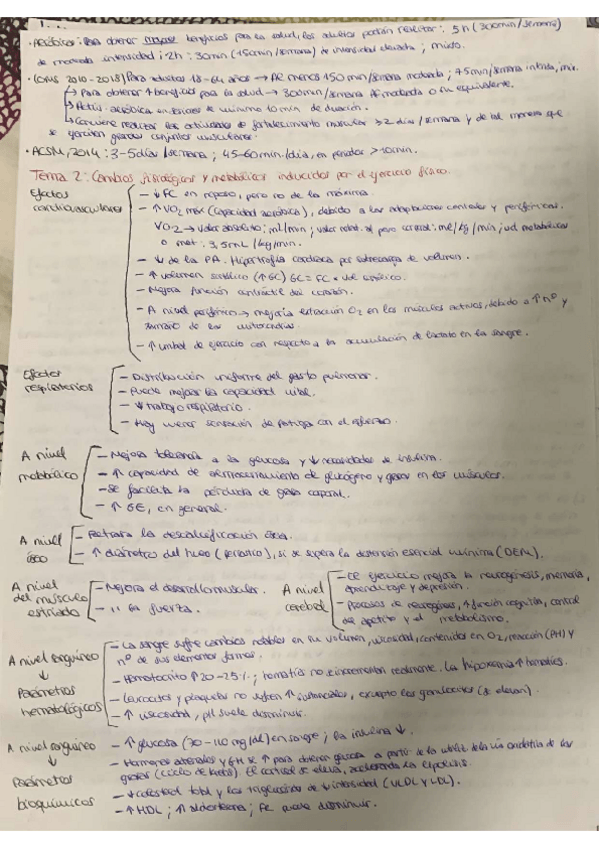 · Aeróbicos: Para obtener mayores beneficios para la salud, los adultos podrían realizar: 5h (300min/semana)
de moderada intensidad; 2h : 30min (150min/semana) de intensidad elevada; mixto.
· (OMS 2010-2018) Para adultos 18-64 años → Al menos 150 min/semana moderada; 75min/semana intensa, mix.
↳ Para obtener + beneficios para la salud → 300min/semana AF moderada o su equivalente.
↳ Activ. aeróbica en sesiones de mínimo 10 min de duración.
↳ Conviene realizar las actividades de fortalecimiento muscular ≥ 2 días/semana y de tal manera que
se ejerciten grandes conjuntos musculares.
· ACSM, 2014 : 3-5 días/semana; 45-60min/día, en periodos > 10min.
Tema 2: Cambios fisiológicos y metabólicos inducidos por el ejercicio físico.
Efectos
cardiovasculares
- ↓ FC en reposo, pero no de la máxima.
- ↑ VO2 máx (capacidad aeróbica), debido a las adaptaciones centrales y periféricas.
VO2 → valor absoluto: ml/min; valor relat. al peso corporal: ml/kg/min; ud metabólicas
o met : 3,5mL/kg/min.
- ↓ de la PA. Hipertrofia cardiaca por sobrecarga de volumen.
- ↑ volumen sistólico (↑GC) GC = FC x vol sistólico.
- Mejora función contráctil del corazón.
- A nivel periférico → mejoría extracción O2 en los músculos activos, debido a ↑ nº y
tamaño de las mitocondrias
- ↑ umbral de ejercicio con respecto a la acumulación de lactato en la sangre.
Efectos
respiratorios
- Distribución uniforme del gasto pulmonar.
- Puede mejorar la capacidad vital.
- ↓ trabajo respiratorio.
- Hay menor sensación de fatiga con el esfuerzo.
A nivel
metabólico
- Mejora tolerancia a la glucosa y ↓ necesidades de insulina.
- ↑ capacidad de almacenamiento de glucógeno y grasa en los músculos.
- Se facilita la pérdida de grasa corporal.
- ↑ GE, en general.
A nivel
óseo
- Retrasa la descalcificación ósea.
- ↑ diámetro del hueso (periostio), si se supera la distensión esencial mínima (DEM).
A nivel
del músculo
estriado
- Mejora el desarrollo muscular.
- " la fuerza.
A nivel
cerebral
- El ejercicio mejora la neurogénesis, memoria,
aprendizaje y depresión.
- Procesos de neurogénesis, + función cognitiva, control
del apetito y el metabolismo.
A nivel sanguíneo
↓
Parámetros
hematológicos
- La sangre sufre cambios notables en su volumen, viscosidad, contenido en O2, reacción (PH) y
nº de sus elementos formes.
- Hematocrito ↑ 20-25%; hematíes no se incrementan realmente. La hipoxemia ↑ hematíes.
- Leucocitos y plaquetas no sufren ↑ sustanciales, excepto los granulocitos (se elevan).
- ↑ viscosidad, pH suele disminuir.
A nivel sanguíneo
↓
Parámetros
bioquímicos
- ↑ glucosa (70-110 mg/dl) en sangre; la insulina ↓.
- Hormonas adrenales y GH se ↑ para obtener glucosa a partir de la vía oxidativa de las
grasas (ciclo de Krebs). El cortisol se eleva, acelerando la lipolisis.
- ↓ colesterol total y los triglicéridos de ↓ intensidad (VLDL y LDL).
- ↑ HDL; ↑ aldosterona; Fe puede disminuir.